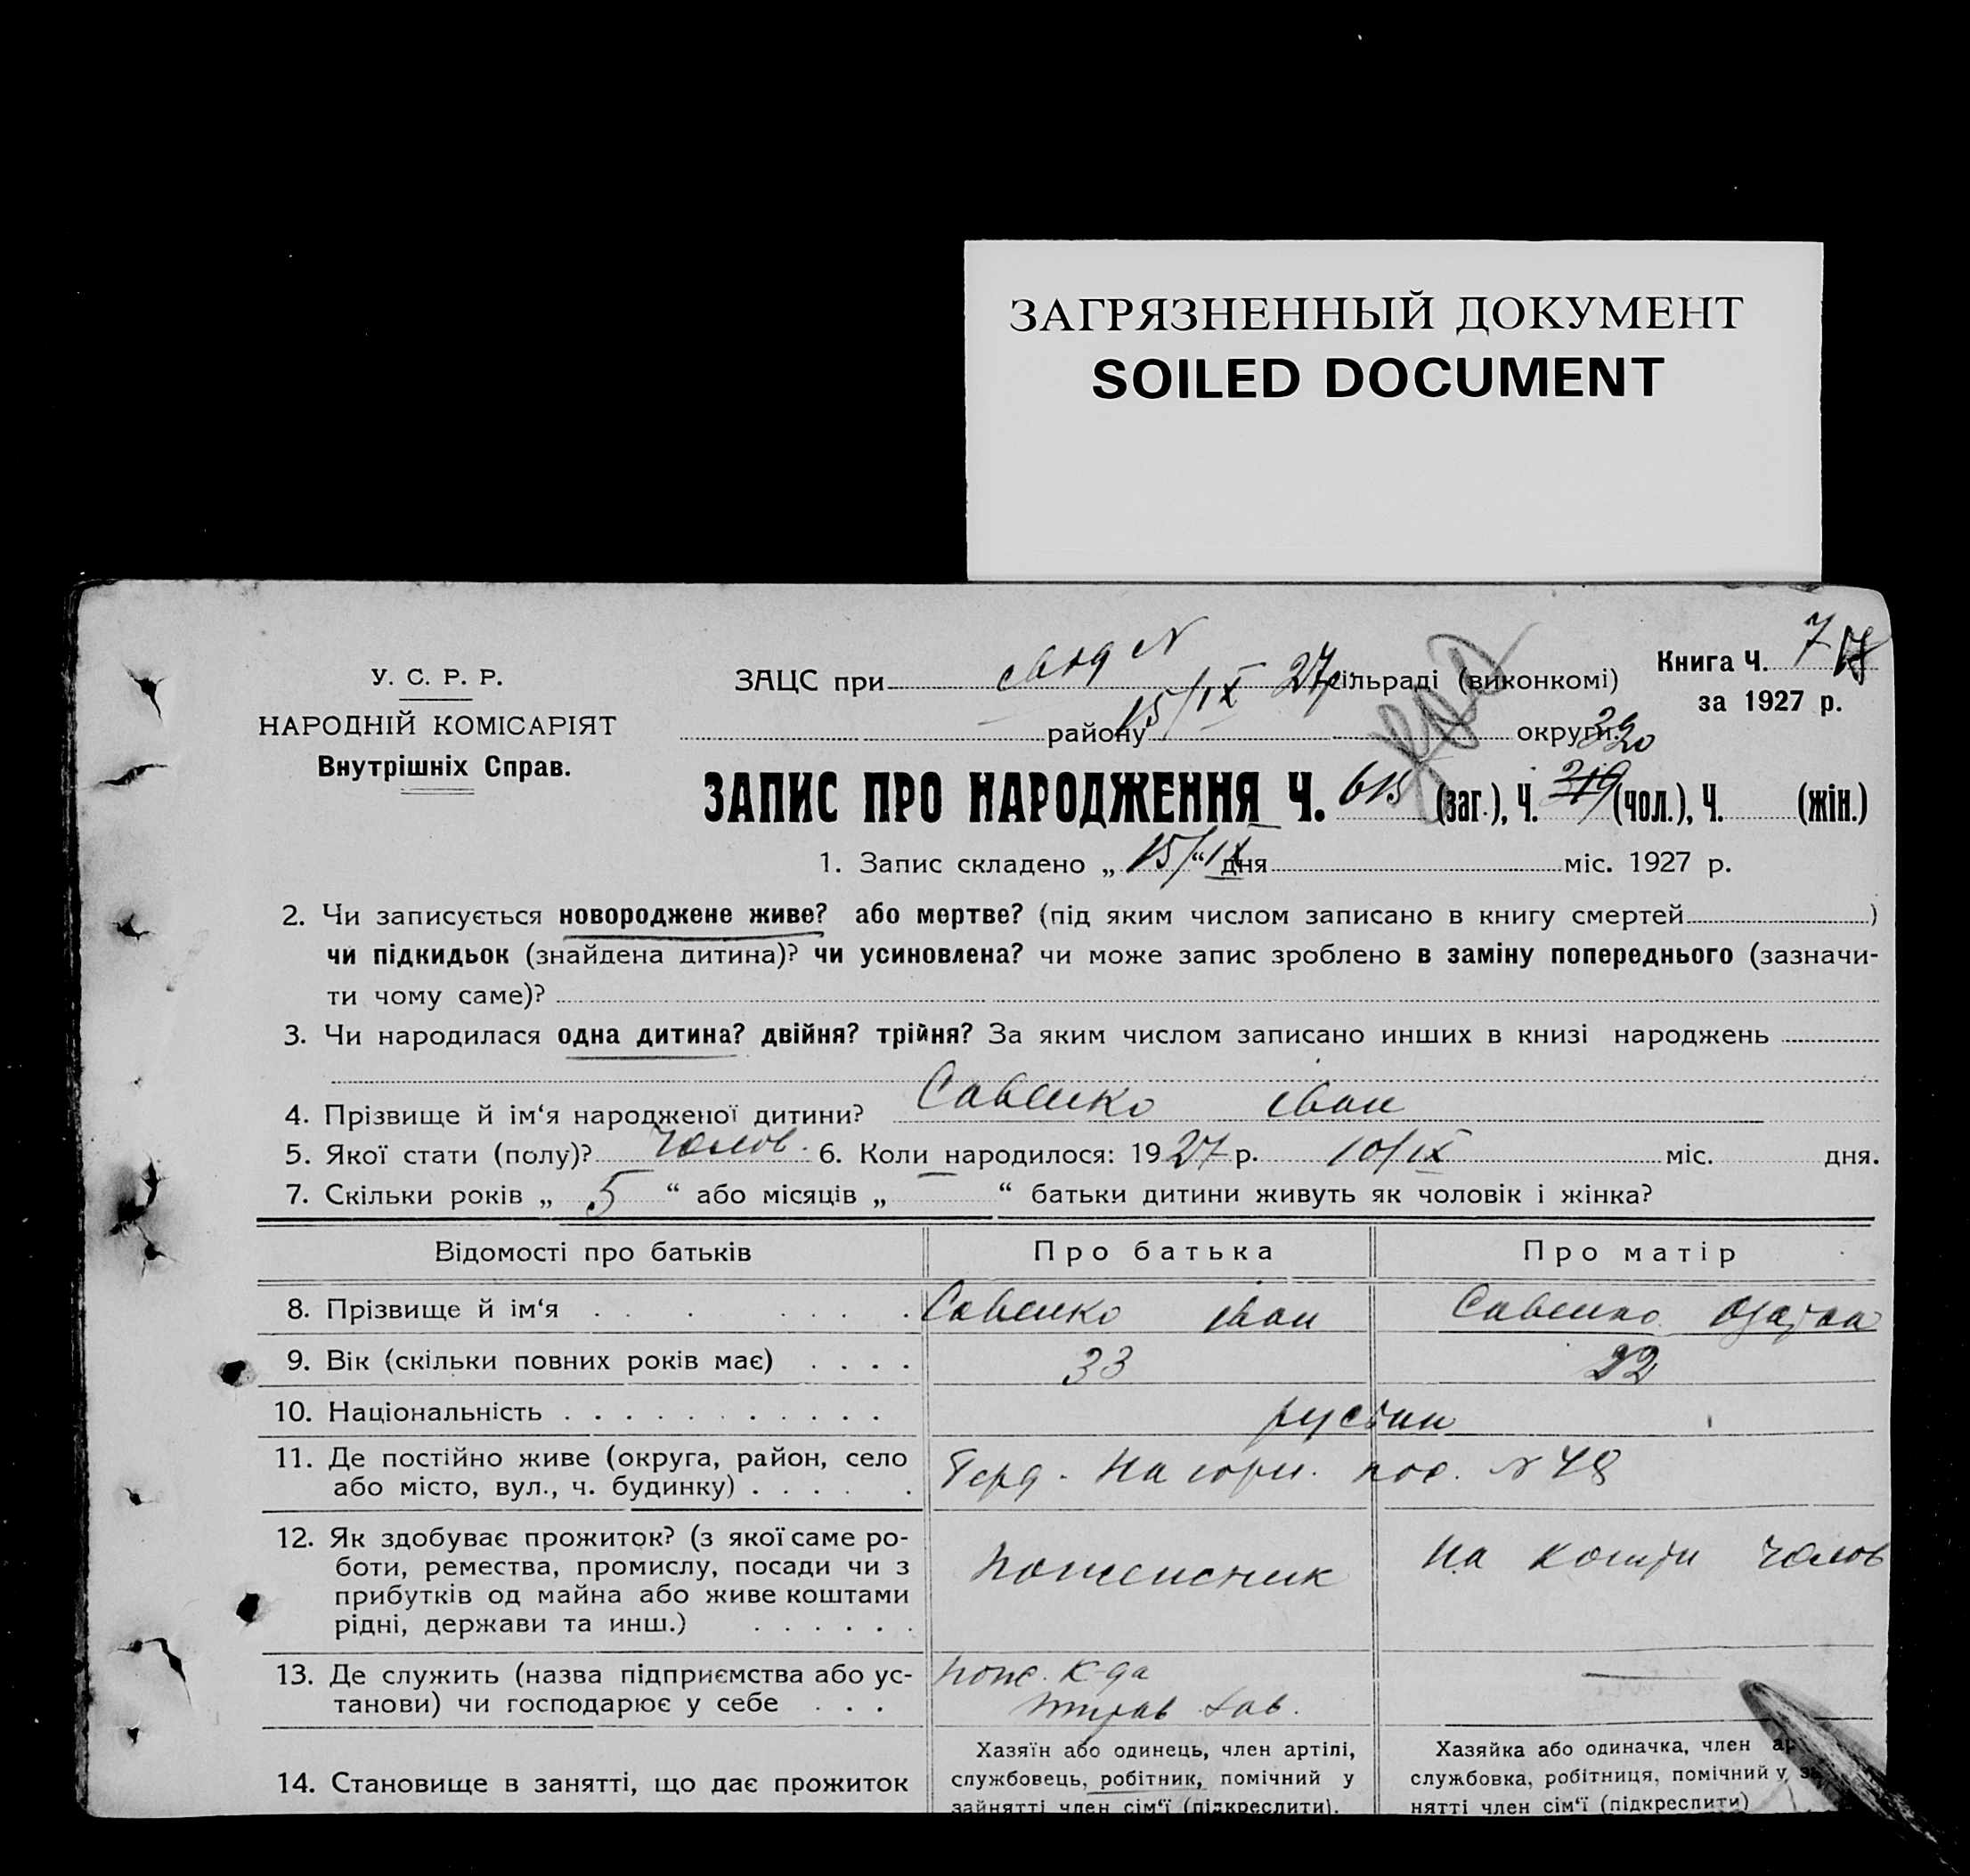 ЗАГРЯЗНЕННЫЙ ДОКУМЕНТ
SOILED DOCUMENT
У. С. Р. Р.
НАРОДНІЙ КОМІСАРІЯТ
Внутрішніх Справ.
ЗАЦС при сільраді (виконкомі)
15/IX 27
району округи.
Книга Ч. 7
за 1927 р.
320
ЗАПИС ПРО НАРОДЖЕННЯ Ч. 615 (заг.), Ч. 319 (чол.), Ч. (жін.)
1. Запис складено „ 15/IX “ дня міс. 1927 р.
2. Чи записується новороджене живе? або мертве? (під яким числом записано в книгу смертей )
чи підкидьок (знайдена дитина)? чи усиновлена? чи може запис зроблено в заміну попереднього (зазначи-
ти чому саме)?
3. Чи народилася одна дитина? двійня? трійня? За яким числом записано инших в книзі народжень
4. Прізвище й ім‘я народженої дитини? Савенко Іван
5. Якої стати (полу)? Чолов. 6. Коли народилося: 1927 р. 10/IX міс. дня.
7. Скільки років „ 5 “ або місяців „ — “ батьки дитини живуть як чоловік і жінка?
Відомості про батьків Про батька Про матір
8. Прізвище й ім‘я Савенко Іван Савенко
9. Вік (скільки повних років має) 33 22
10. Національність
11. Де постійно живе (округа, район, село
або місто, вул., ч. будинку) Нагорн. пос. № 48
12. Як здобуває прожиток? (з якої саме ро-
боти, ремества, промислу, посади чи з
прибутків од майна або живе коштами
рідні, держави та инш.)
на кошти чолов
13. Де служить (назва підприємства або ус-
танови) чи господарює у себе
Пож. К-да
14. Становище в занятті, що дає прожиток
Хазяїн або одинець, член артілі,
службовець, робітник, помічний у
зайнятті член сім‘ї (підкреслити).
Хазяйка або одиначка, член
службовка, робітниця, помічний у
нятті член сім‘ї (підкреслити)